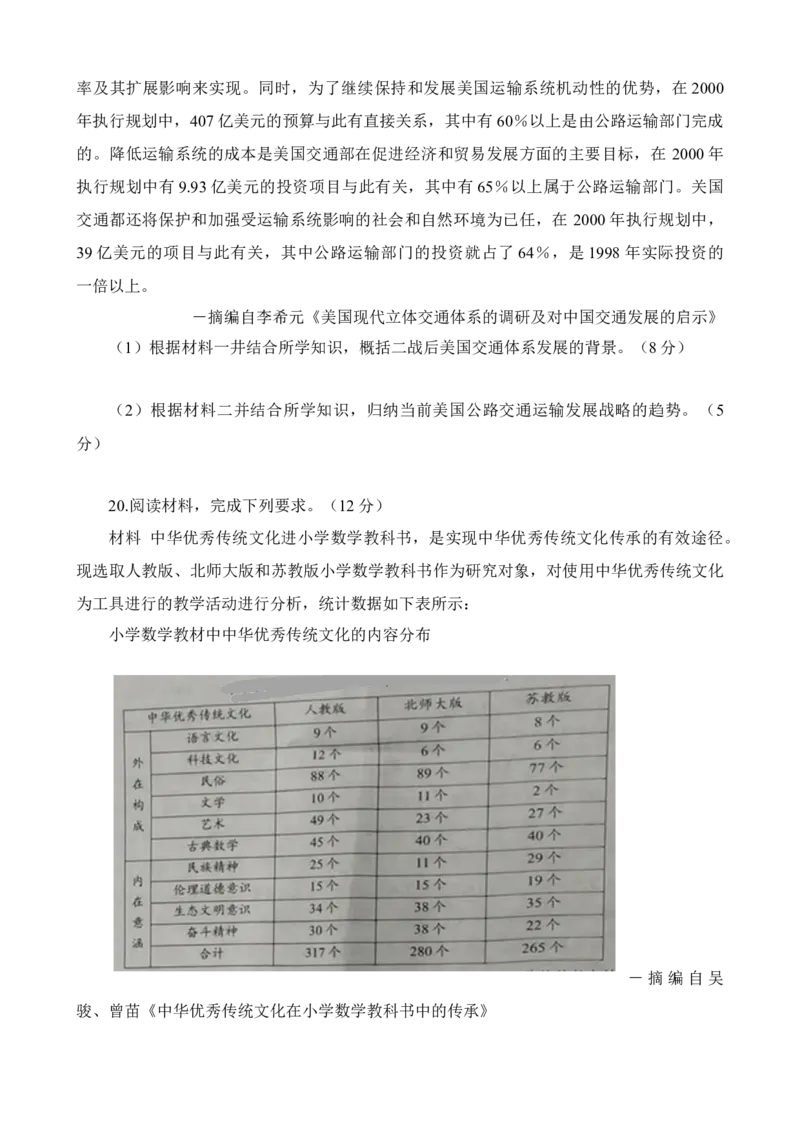 率及其扩展影响来实现。同时，为了继续保持和发展美国运输系统机动性的优势，在 2000
年执行规划中，407 亿美元的预算与此有直接关系，其中有 60％以上是由公路运输部门完成
的。降低运输系统的成本是美国交通部在促进经济和贸易发展方面的主要目标，在 2000 年
执行规划中有 9.93 亿美元的投资项目与此有关，其中有 65％以上属于公路运输部门。关国
交通都还将保护和加强受运输系统影响的社会和自然环境为已任，在 2000 年执行规划中，
39 亿美元的项目与此有关，其中公路运输部门的投资就占了 64％，是 1998 年实际投资的
一倍以上。
－摘编自李希元《美国现代立体交通体系的调研及对中国交通发展的启示》
（1）根据材料一井结合所学知识，概括二战后美国交通体系发展的背景。（8 分）
（2）根据材料二并结合所学知识，归纳当前美国公路交通运输发展战略的趋势。（5
分）
20.阅读材料，完成下列要求。（12 分）
材料 中华优秀传统文化进小学数学教科书，是实现中华优秀传统文化传承的有效途径。
现选取人教版、北师大版和苏教版小学数学教科书作为研究对象，对使用中华优秀传统文化
为工具进行的教学活动进行分析，统计数据如下表所示：
小学数学教材中中华优秀传统文化的内容分布
中华优秀传统文化 人教版 北师大版 苏教版
外在构成 语言文化 9个 9个 8个
科技文化 12个 6个 6个
民俗 88个 89个 77个
文学 10个 11个 2个
艺术 49个 23个 27个
古典数学 45个 40个 40个
内在意涵 民族精神 25个 11个 29个
伦理道德意识 15个 15个 19个
生态文明意识 34个 38个 35个
奋斗精神 30个 38个 22个
合计 317个 280个 265个
－摘编自吴
骏、曾苗《中华优秀传统文化在小学数学教科书中的传承》